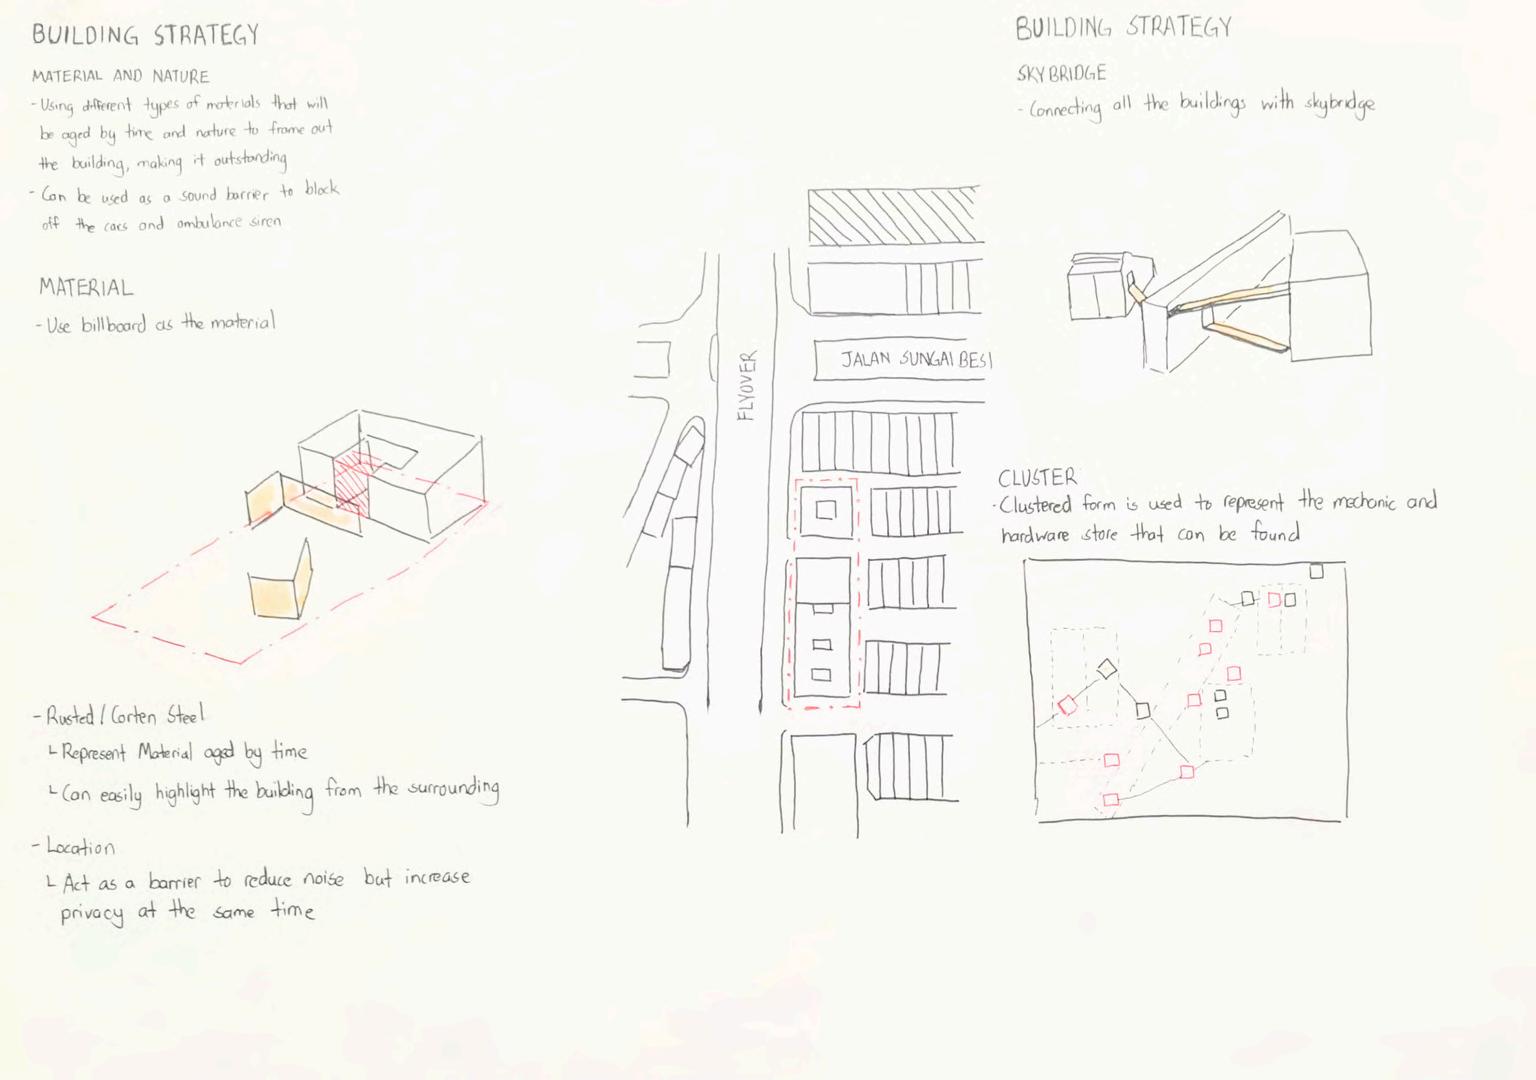 BUILDING STRATEGY
MATERIAL AND NATURE
- Using different types of materials that will
be aged by time and nature to frame out
the building, making it outstanding
- Can be used as a sound barrier to block
off the cars and ambulance siren
MATERIAL
- Use billboard as the material
- Rusted / Corten Steel
└ Represent Material aged by time
└ Can easily highlight the building from the surrounding
- Location
└ Act as a barrier to reduce noise but increase
privacy at the same time
FLYOVER
JALAN SUNGAI BESI
BUILDING STRATEGY
SKYBRIDGE
- Connecting all the buildings with skybridge
CLUSTER
- Clustered form is used to represent the mechanic and
hardware store that can be found